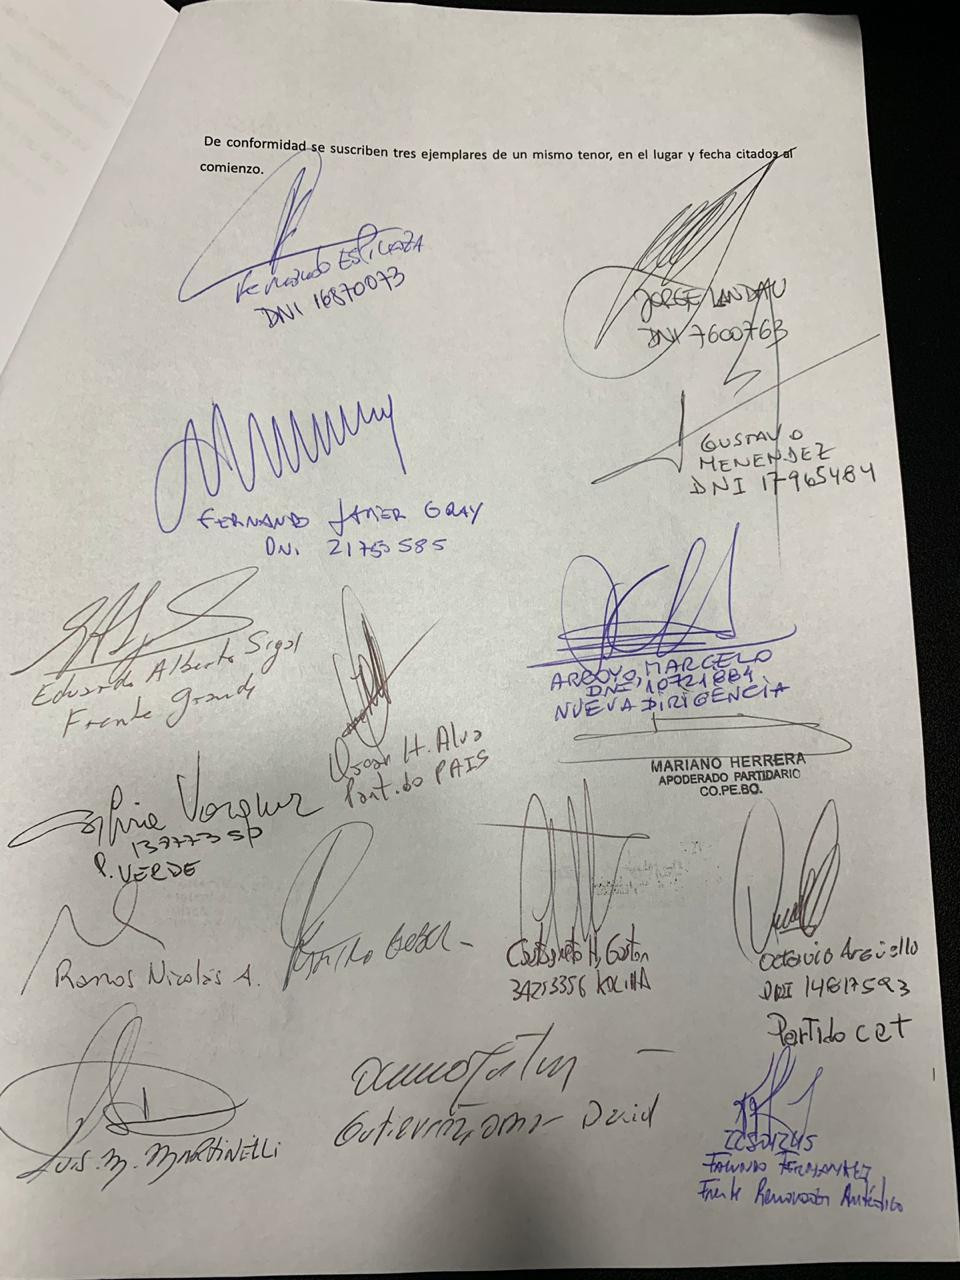 De conformidad se suscriben tres ejemplares de un mismo tenor, en el lugar y fecha citados al
comienzo.
Fernando ESPINOZA
DNI 16870073
JORGE LANDAU
DNI 7600763
GUSTAVO
MENENDEZ
DNI 17965484
FERNANDO JAVIER GRAY
DNI 21750585
Eduardo Alberto Sigal
Frente Grande
Oscar H. Alva
Partido PAIS
ARROYO, MARCELO
DNI, 10721884
NUEVA DIRIGENCIA
MARIANO HERRERA
APODERADO PARTIDARIO
CO.PE.BO.
Silvia Vazquez
P. VERDE
Ramos Nicolás A.
H, Gaston
34253356 KOLINA
Octavio Argüello
DNI 14817593
Partido CET
LUIS. M. MARTINELLI
Gutierrez, Omar David
FACUNDO FERNANDEZ
Frente Renovador Auténtico